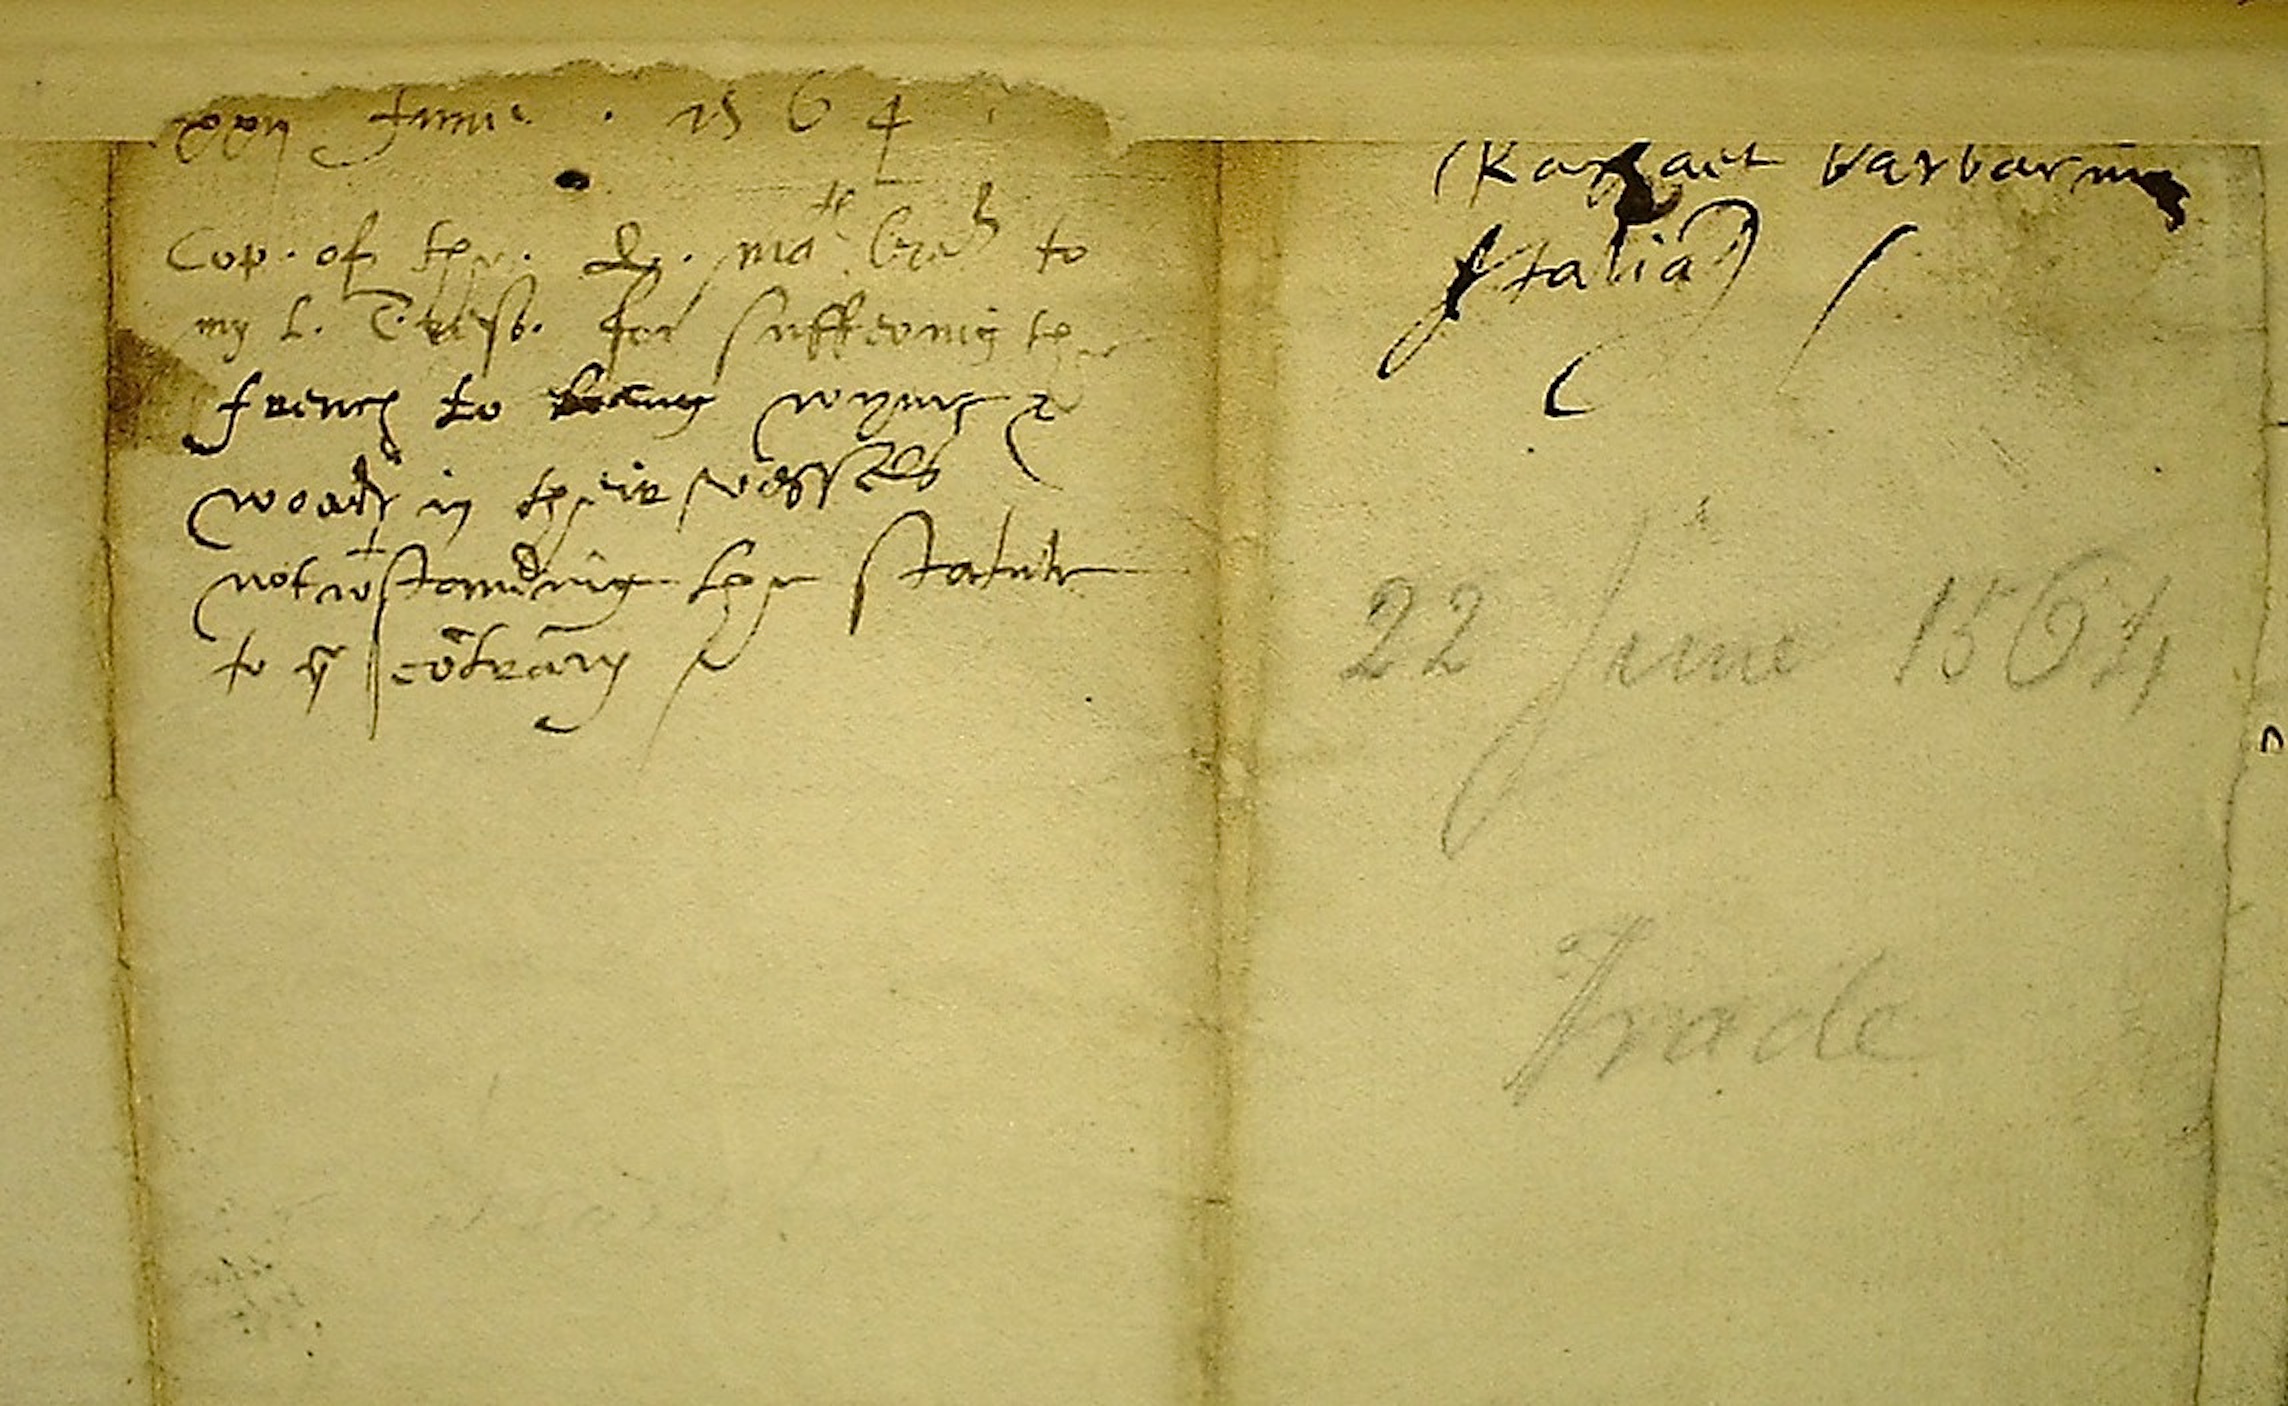 xxij June . 1564
Cop. of the . Q. ma^te l̃res to
my L. Thess. for suffering the
french to bring wynes &
woade in their vessells
notw^tstanding the statute
to y^e cõtrary
Raphael Barbarinus
Italian
22 June 1564
Trade